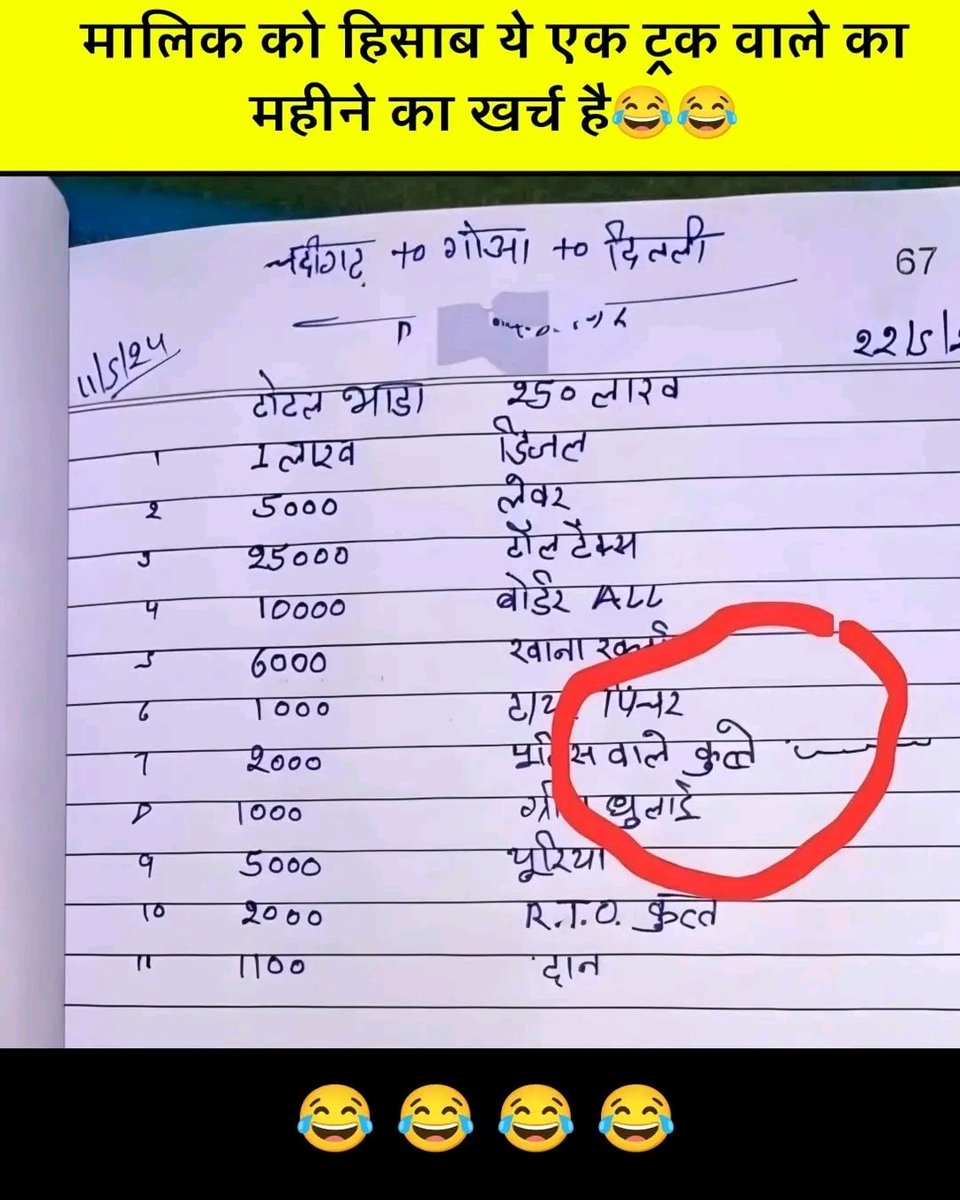 मालिक को हिसाब ये एक ट्रक वाले का
महीने का खर्च है😂😂
चदीगढ़ to गोआ to दिल्ली
67
11/5/24
22/5/2
टोटल भाडा 250 लाख
1 1 लाख डिजल
2 5000 लेवर
3 25000 टोल टैक्स
4 10000 बोर्डर ALL
5 6000 खाना
6 1000 पिंचर
7 2000 वाले कुत्ते
8 1000 धुलाई
9 5000 यूरिया
10 2000 R.T.O. कुत्त
11 1100 दान
😂 😂 😂 😂